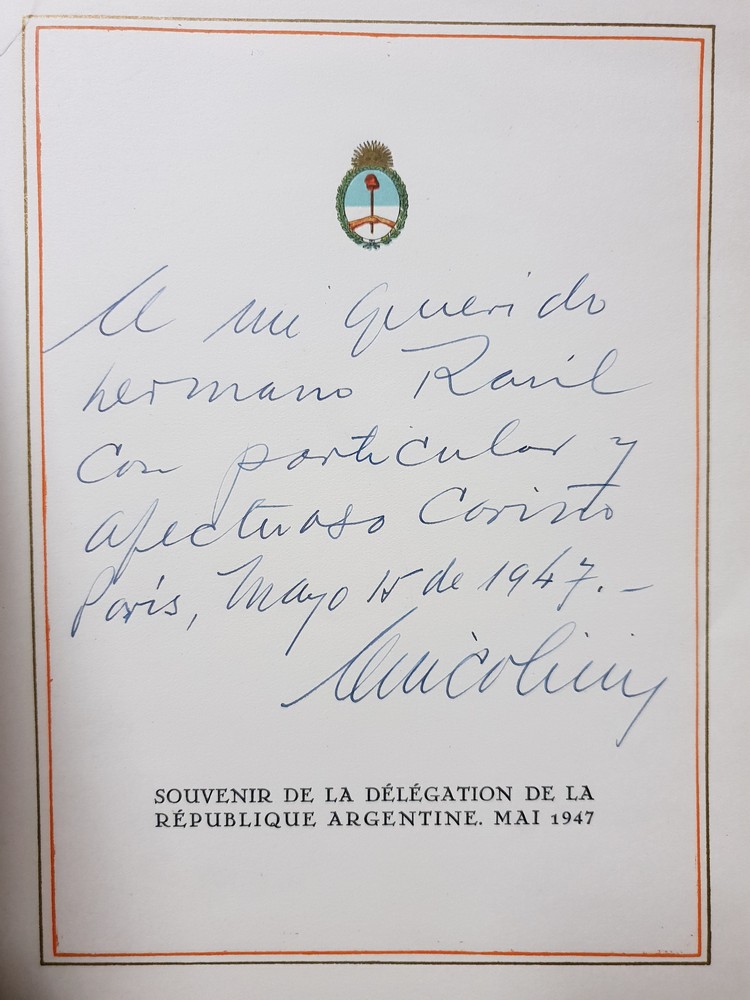 A mi querido
hermano Raúl
con particular y
afectuoso cariño
París, Mayo 15 de 1947.-
SOUVENIR DE LA DÉLÉGATION DE LA
RÉPUBLIQUE ARGENTINE. MAI 1947